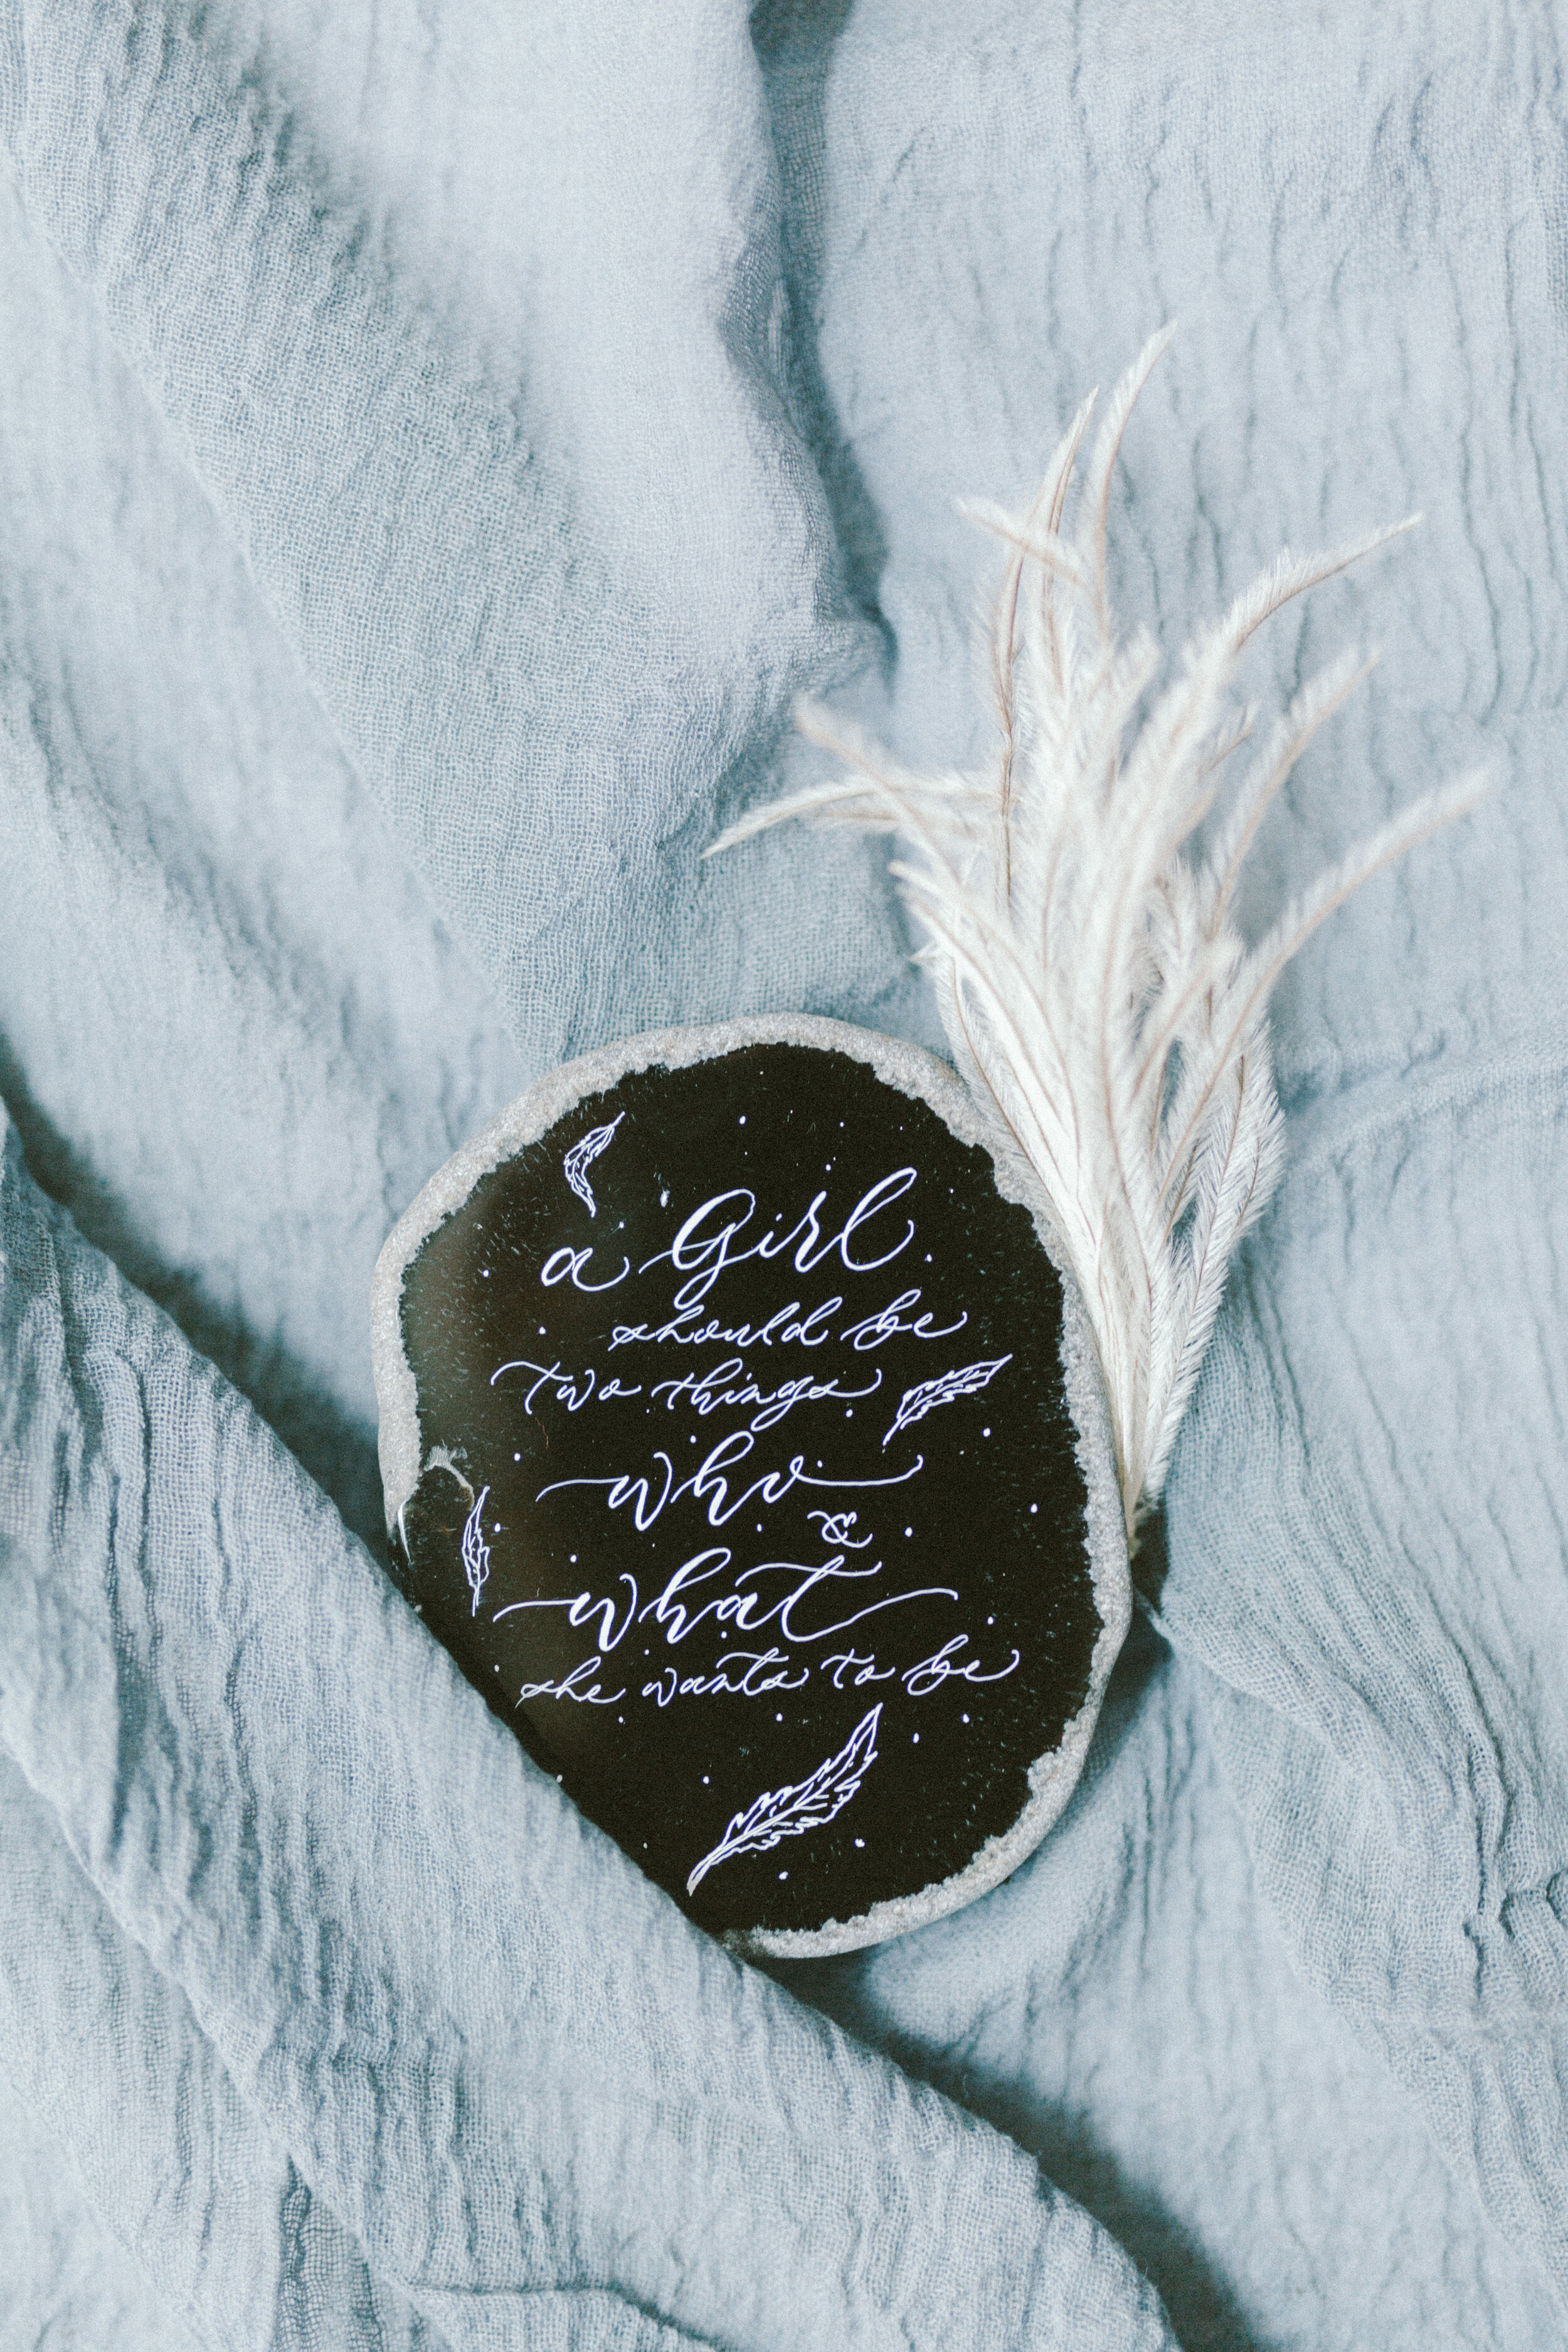 a Girl
should be
two things
who
&
what
she wants to be